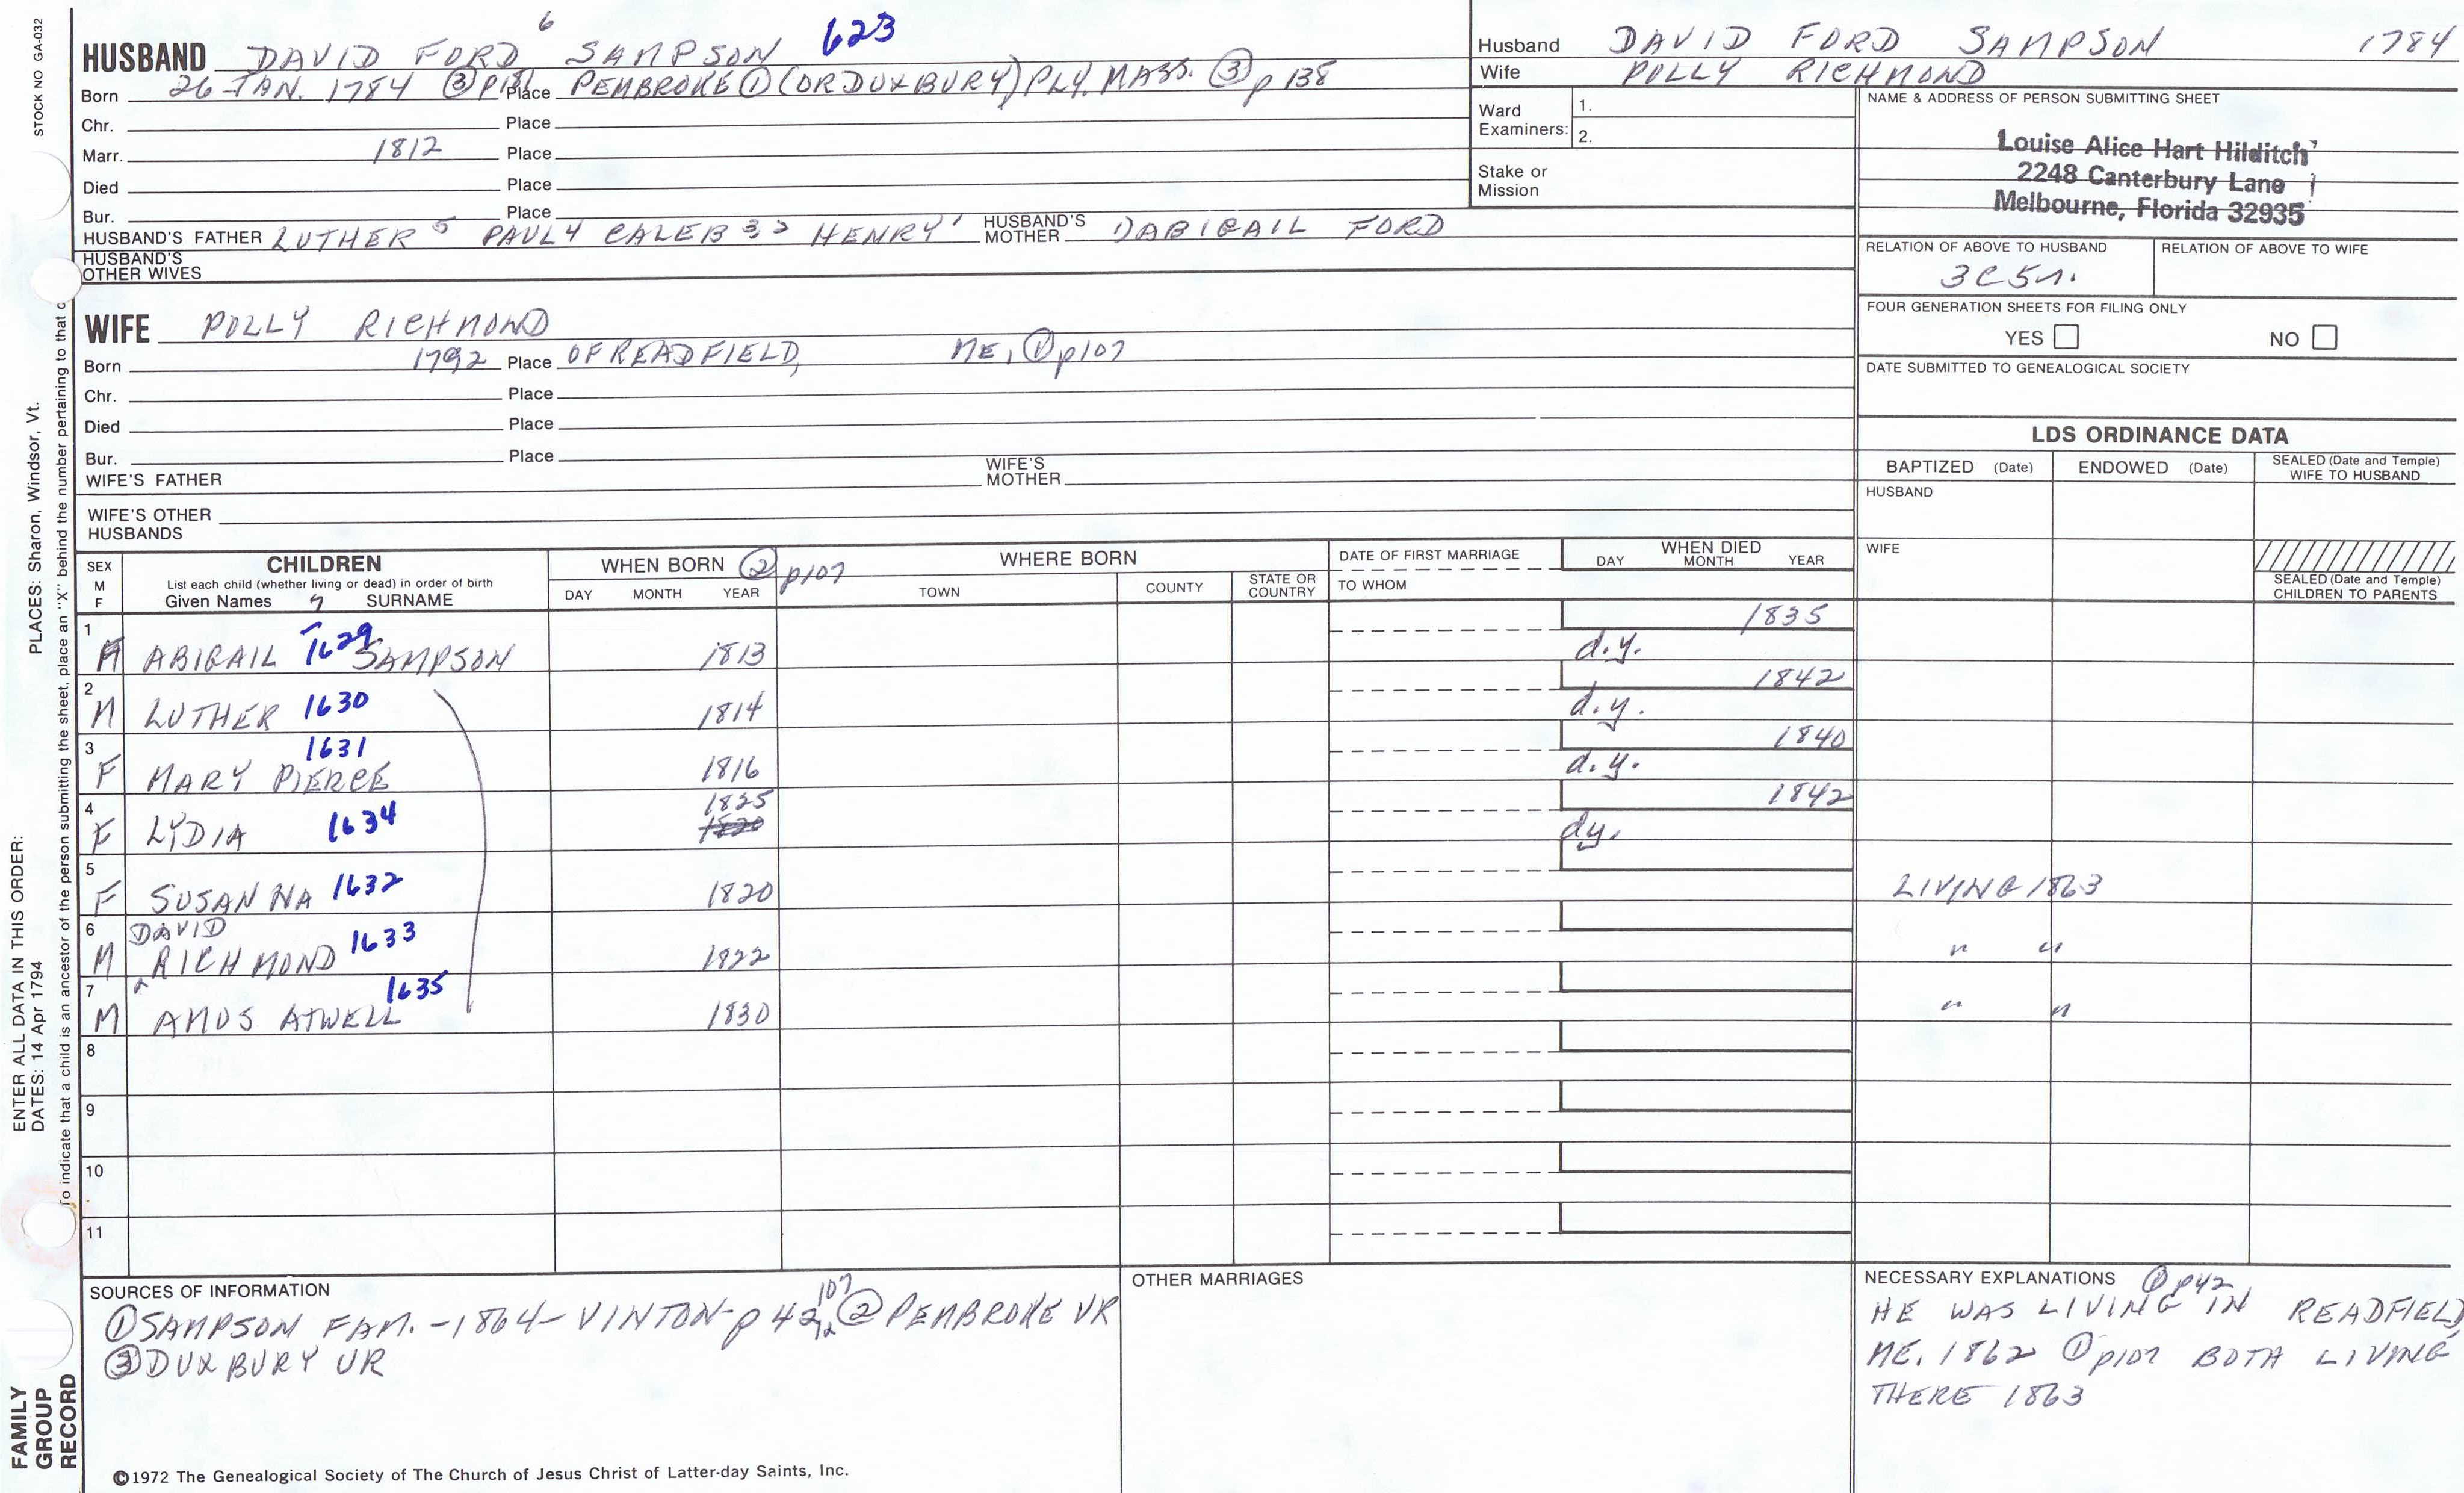 STOCK NO GA-032
6
HUSBAND DAVID FORD SAMPSON 623
Born 26 JAN. 1784 ③ Place PEMBROKE ① (OR DUXBURY) PLY. MASS. ③ p 138
Chr. Place
Marr. 1812 Place
Died Place
Bur. Place
HUSBAND'S FATHER LUTHER 5 PAUL 4 CALEB 3, 2 HENRY 1 HUSBAND'S MOTHER ABIGAIL FORD
HUSBAND'S OTHER WIVES
WIFE POLLY RICHMOND
Born 1792 Place OF READFIELD, ME, ① p107
Chr. Place
Died Place
Bur. Place
WIFE'S FATHER WIFE'S MOTHER
WIFE'S OTHER HUSBANDS
Husband DAVID FORD SAMPSON 1784
Wife POLLY RICHMOND
Ward Examiners: 1.
2.
Stake or Mission
NAME & ADDRESS OF PERSON SUBMITTING SHEET
Louise Alice Hart Hilditch
2248 Canterbury Lane
Melbourne, Florida 32935
RELATION OF ABOVE TO HUSBAND RELATION OF ABOVE TO WIFE
3C5r.
FOUR GENERATION SHEETS FOR FILING ONLY
YES NO
DATE SUBMITTED TO GENEALOGICAL SOCIETY
LDS ORDINANCE DATA
BAPTIZED (Date) ENDOWED (Date) SEALED (Date and Temple) WIFE TO HUSBAND
HUSBAND
WIFE
SEALED (Date and Temple) CHILDREN TO PARENTS
SEX M F CHILDREN WHEN BORN ② p107 WHERE BORN DATE OF FIRST MARRIAGE WHEN DIED
List each child (whether living or dead) in order of birth
Given Names 7 SURNAME DAY MONTH YEAR TOWN COUNTY STATE OR COUNTRY TO WHOM DAY MONTH YEAR
1 F ABIGAIL 1629 SAMPSON 1813 d.y. 1835
2 M LUTHER 1630 1814 d.y. 1842
3 F MARY PIERCE 1631 1816 d.y. 1840
4 F LYDIA 1634 1825 1820 dy. 1842
5 F SUSANNA 1632 1820 LIVING 1863
6 M DAVID RICHMOND 1633 1822 " "
7 M AMOS ATWELL 1635 1830 " "
8
9
10
11
SOURCES OF INFORMATION
① SAMPSON FAM. - 1864 - VINTON - p 42, 107 ② PEMBROKE VR
③ DUXBURY VR
OTHER MARRIAGES
NECESSARY EXPLANATIONS ① p42
HE WAS LIVING IN READFIELD,
ME. 1862 ① p107 BOTH LIVING
THERE 1863
©1972 The Genealogical Society of The Church of Jesus Christ of Latter-day Saints, Inc.
ENTER ALL DATA IN THIS ORDER:
DATES: 14 Apr 1794 PLACES: Sharon, Windsor, Vt.
To indicate that a child is an ancestor of the person submitting the sheet, place an "X" behind the number pertaining to that
FAMILY
GROUP
RECORD